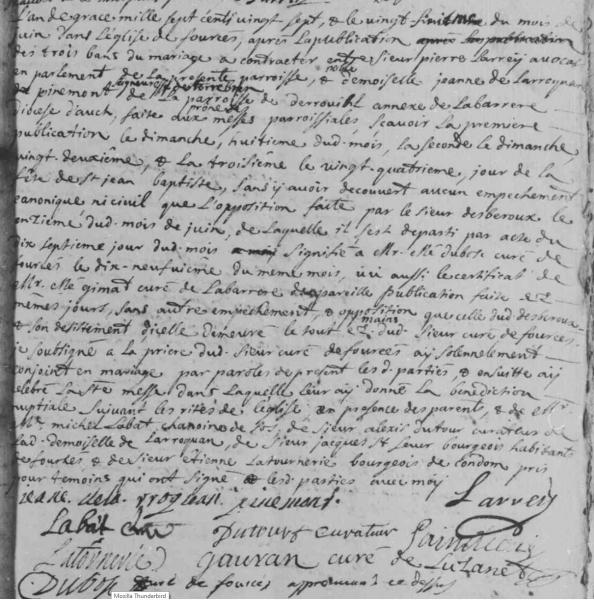 L'an de grace mille sept cents vingt sept, & le vingt huitième du mois de
juin dans l'église de fources, après la publication après la publication
des trois bans du mariage a contracter entre sieur pierre Larrey avocat
en parlement de La presente parroisse, & demoiselle jeanne de Larroquan
de pinemont de La parroisse de derrouilh annexe de Labarrere
diocese d'auch, faite aux messes parroissiales, scavoir La premiere
publication le dimanche, huitieme dud. mois, la seconde le dimanche,
vingt-deuxième, & La troisième le vingt-quatrieme, jour de la
fête de st jean baptiste, sans y avoir decouvert aucun empechement
canonique ni civil que L'opposition faite par le sieur desberoux le
onzieme dud. mois de juin, de Laquelle il s'est departi par acte du
dix septieme jour dud. mois signifié a Mr. Me dubosc curé de
fources le dix-neufvieme du meme mois, vu aussi le certificat de
Mr. Me gimat curé de Labarrere de pareille publication faite ez
mêmes jours, sans autre empechement & opposition que celle dud desberoux
& son desistement d'icelle demeuré le tout ez mains dud. sieur curé de fources.
je soussigné a La priere dud. sieur curé de fources aij solennelement
conjoint en mariage par paroles de present les d. parties & ensuitte aij
celebré La ste messe dans Laquelle leur aij donné La benediction
nuptiale suivant les rites de L'eglise en presence des parents, & de Mr
Me. michel Labat, chanoine de sos, de sieur alexis dutour curateur de
Lad. demoiselle de Larroquan, de sieur jacques st Leuer bourgeois habitants
de fources & de sieur etienne Latournerie bourgeois de condom pris
pour temoins qui ont signé & les d. parties avec moij
jeane de la rroquan pinemont. Larrey
Labat Dutour curateur
Latournerie gauran curé de Luzanet
Dubosc curé de fources approuvant ce dessus
Mozilla Thunderbird